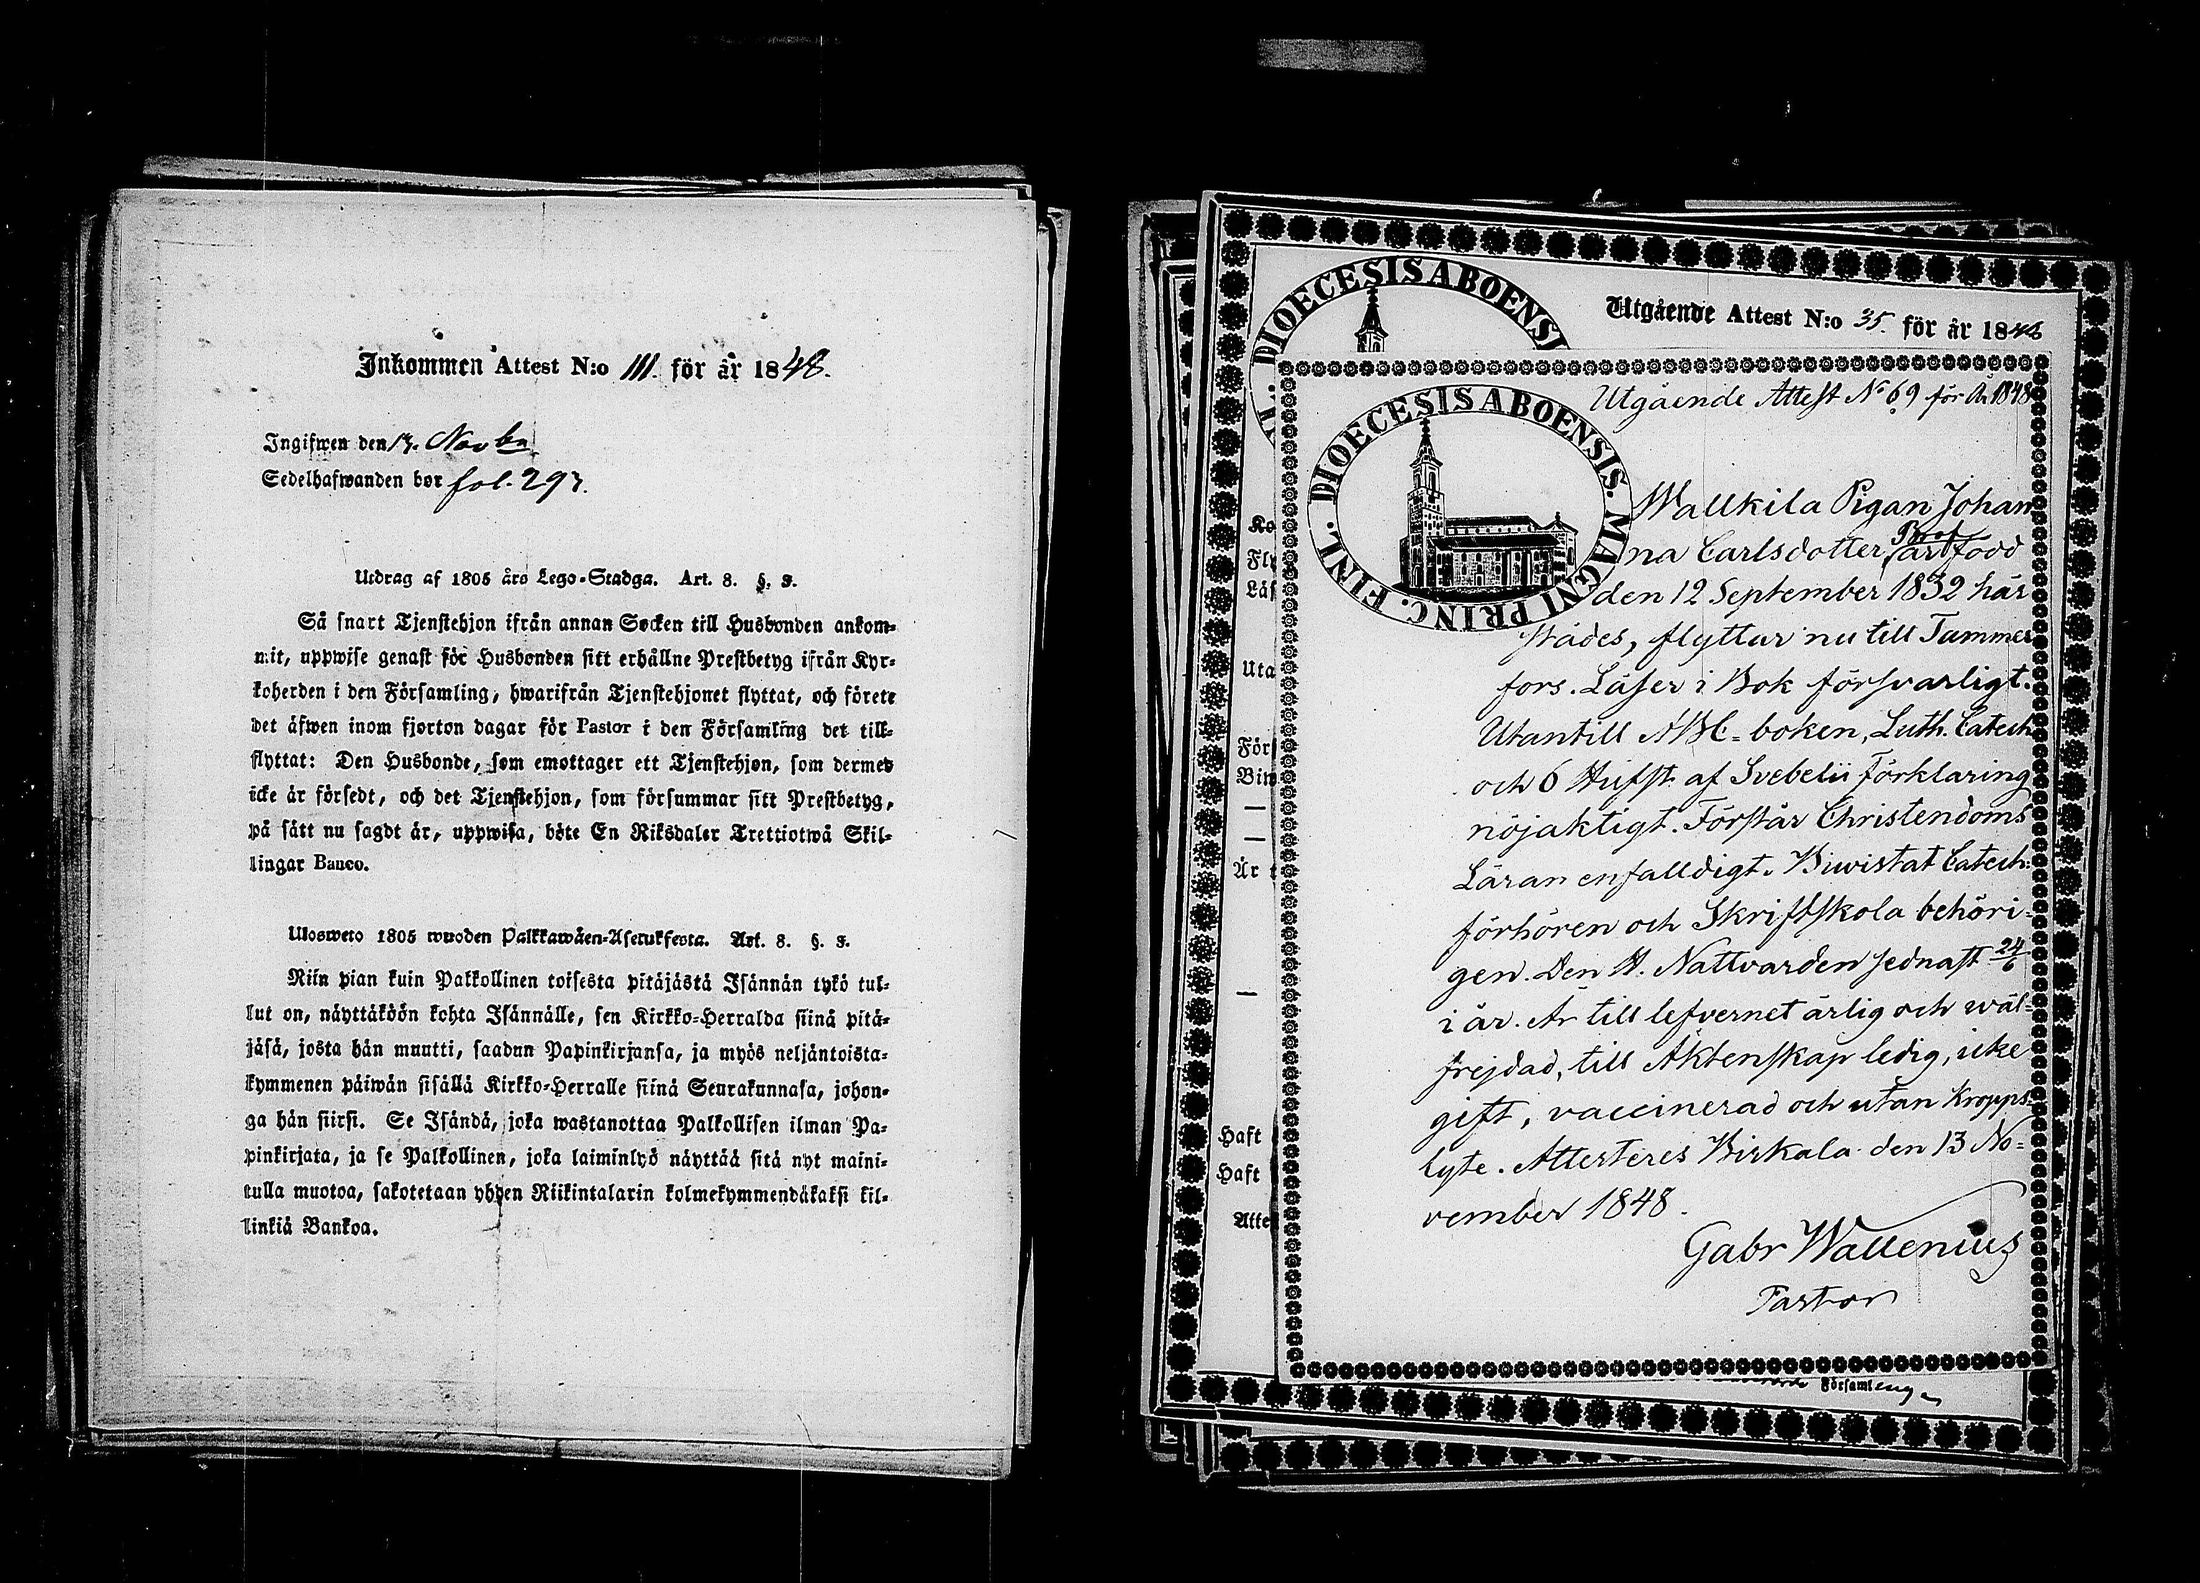 Inkommen Attest N:o 111. för år 1848.
Ingifwen den 13. Novbr
Sedelhafwanden bor fol. 293.
Utdrag af 1805 års Lego-Stadga. Art. 8. §. 3.
Så snart Tjenstehjon ifrån annan Socken till Husbonden ankom-
mit, uppwise genast för Husbonden sitt erhållne Prestbetyg ifrån Kyr-
koherden i den Församling, hwarifrån Tjenstehjonet flyttat, och förete
det äfwen inom fjorton dagar för Pastor i den Församling det till-
flyttat: Den Husbonde, som emottager ett Tjenstehjon, som dermed
icke är försedt, och det Tjenstehjon, som försummar sitt Prestbetyg,
på sätt nu sagdt är, uppwisa, böte En Riksdaler Trettiotwå Skil-
lingar Banco.
Ulosweto 1805 wuoden Palkkawäen-Asetuksesta. Art. 8. §. 3.
Niin pian kuin Palkollinen toisesta pitäjästä Isännän tykö tul-
lut on, näyttäköön kohta Isännälle, sen Kirkko-Herralda siinä pitä-
jäsä, josta hän muutti, saadun Papinkirjansa, ja myös neljäntoista-
kymmenen päiwän sisällä Kirkko-Herralle siinä Seurakunnasa, johon-
ga hän siirsi. Se Isändä, joka wastanottaa Palkollisen ilman Pa-
pinkirjata, ja se Palkollinen, joka laiminlyö näyttää sitä nyt maini-
tulla muotoa, sakotetaan yhden Riikintalarin kolmekymmendäkaksi kil-
linkiä Bankoa.
Utgående Attest N:o 35. för år 1848
DIOECESIS ABOENSI
Utgående Attest No 69 för År 1848
DIOECESIS ABOENSIS. MAGNI PRINC. FINL.
Wallkila Pigan Johan
na Carlsdotter, född
den 12 September 1832 här
städes, flyttar nu till Tammer
fors. Läser i Bok försvarligt.
Utantill ABC-boken, Luth. Catech
och 6 Hufst. af Svebelii Förklaring
nöjaktigt. Förstår Christendoms
Läran enfalldigt. Biwistat Catech:
förhören och Skriftskola behöri-
gen. Den H. Nattvarden sednast 24/6
i år. Är till lefvernet ärlig och wäl-
frejdad, till Äktenskap ledig, icke
gift, vaccinerad och utan Kropps
lyte. Attesteres Birkala den 13 No-
vember 1848.
Gabr Wallenius
Pastor
Ko
Fly
Läs
Uta
Förs
Biw
Är
Haft
Haft
Atte
Församl